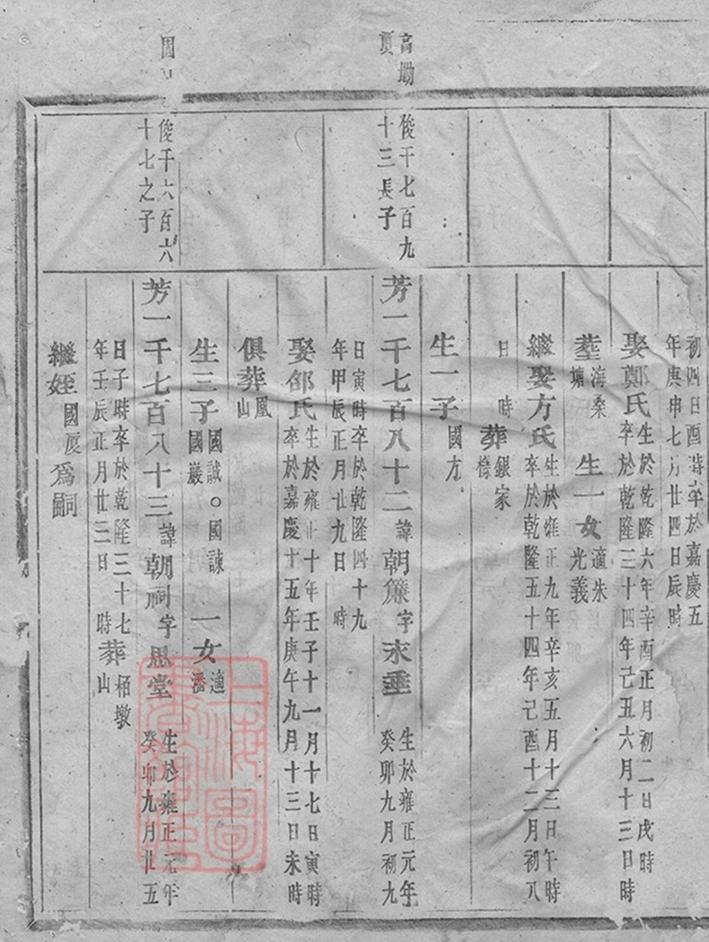 初四日酉時卒於嘉慶五
年庚申七月廿四日辰時
娶鄭氏
生於乾隆六年辛酉正月初二日戌時
卒於乾隆三十四年己丑六月十三日時
葬海桑塘
生一女適朱光義
繼娶方氏
生於雍正九年辛亥五月十三日午時
卒於乾隆五十四年己酉十二月初八
日 時葬銀家
生一子國方
高塘
俊千七百九
十三長子
芳一千七百八十二諱朝簾字永垂
生於雍正元年
癸卯九月初九
日寅時卒於乾隆四十九
年甲辰正月廿九日 時
娶邵氏
生於雍正十年壬子十一月十七日寅時
卒於嘉慶十五年庚午九月十三日未時
俱葬鳳山
生三子國誠〇國諫國巖
一女適潘
俊千六百六
十七之子
芳一千七百八十三諱朝祠字思堂
生於雍正元年
癸卯九月廿五
日子時卒於乾隆三十七
年壬辰正月廿三日 時葬栢墩山
繼姪國辰為嗣
上海圖